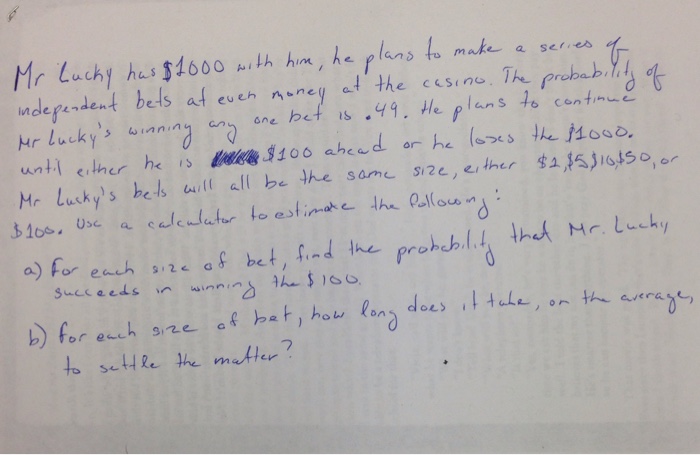 Mr Lucky has $1000 with him, he plans to make a series of
independent bets at even money at the casino. The probability of
Mr Lucky's winning any one bet is .49. He plans to continue
until either he is $100 ahead or he loses the $1000.
Mr Lucky's bets will all be the same size, either $1,$5,$10,$50, or
$100. Use a calculator to estimate the following:
a) for each size of bet, find the probability that Mr. Lucky
succeeds in winning the $100.
b) for each size of bet, how long does it take, on the average,
to settle the matter?